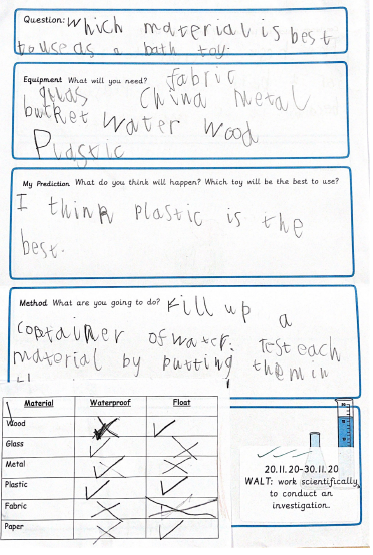 Question: Which material is best
to use as a bath toy.
Equipment What will you need? fabric
glas China Metal
bucket water wood
Plastic
My Prediction What do you think will happen? Which toy will be the best to use?
I think plastic is the
best.
Method What are you going to do? Fill up a
container of water. Test each
material by putting them in
Material Waterproof Float
Wood
Glass
Metal
Plastic
Fabric
Paper
20.11.20-30.11.20
WALT: work scientifically
to conduct an
investigation.